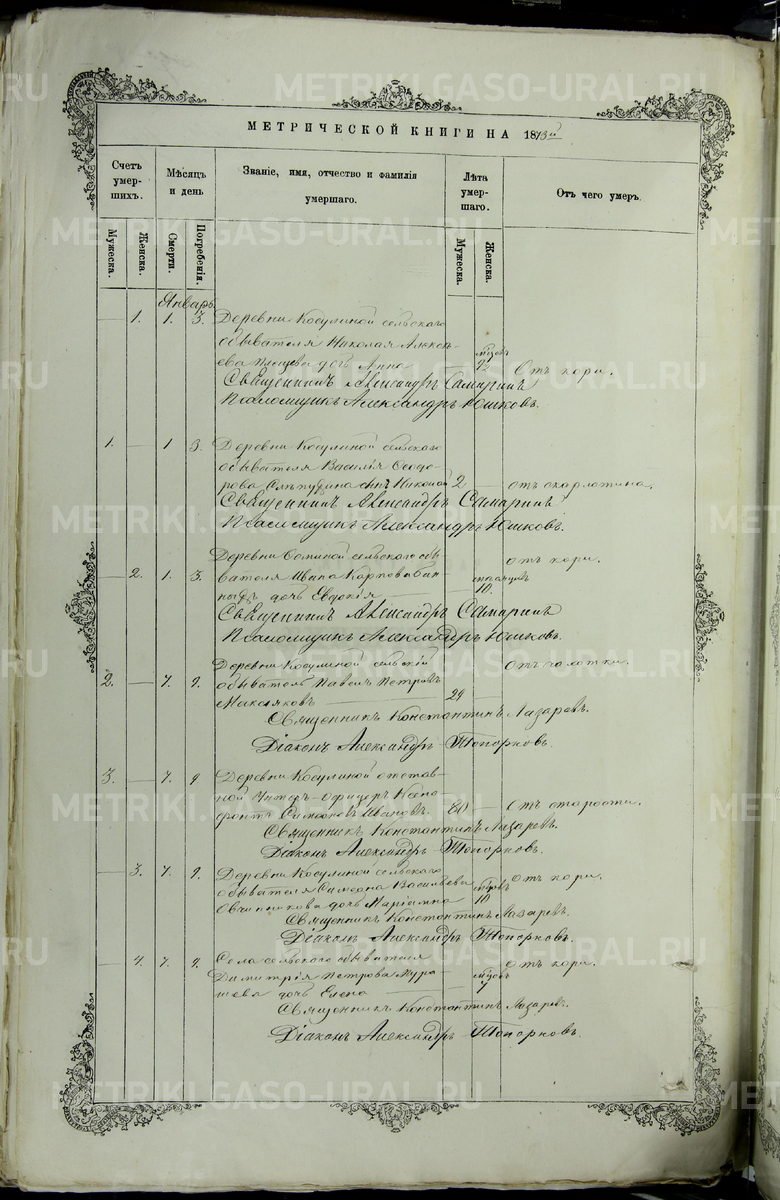 МЕТРИЧЕСКОЙ КНИГИ НА 1873й
Счетъ умер-шихъ.
Мѣсяцъ и день
Званіе, имя, отчество и фамилія умершаго.
Лѣта умер-шаго.
Отъ чего умеръ.
Мужеска.
Женска.
Смерти.
Погребенія.
Мужеска.
Женска.
Январь.
— 1. 1. 3. Деревни Косулиной сельскаго
обывателя Николая Алексѣ-
ева дочь Анна
Отъ кори.
Священникъ Александръ Самаринъ
Псаломщикъ Александръ Юшковъ.
1. — 1 3. Деревни Косулиной сельскаго
обывателя Василія Ѳеодо-
рова сынъ Николай 2 — отъ скарлатина.
Священникъ Александръ Самаринъ
Псаломщикъ Александръ Юшковъ.
Деревни сельскаго обы-
отъ кори.
— 2. 1. 3. вателя Ивана Карпова
дочь Евдокія — 10.
Священникъ Александръ Самаринъ
Псаломщикъ Александръ Юшковъ.
Деревни Косулиной сельскій
отъ чахотки.
2. — 7. 9. обыватель Павелъ Петровъ
29 —
Священникъ Константинъ Лазаревъ.
Діаконъ Александръ Топорковъ.
3. — 7. 9 Деревни Косулиной отстав-
ной Унтеръ-Офицеръ Ксено-
фонтъ Симеоновъ Ивановъ. 80 — Отъ старости.
Священникъ Константинъ Лазаревъ.
Діаконъ Александръ Топорковъ.
— 3. 7. 9. Деревни Косулиной сельскаго
Отъ кори.
обывателя Симеона Васильева
Овчинникова дочь Маріамна — 10
Священникъ Константинъ Лазаревъ.
Діаконъ Александръ Топорковъ.
— 4. 7. 9. Села сельскаго обывателя
отъ кори.
Димитрія Петрова Мура-
шева дочь Елена
Священникъ Константинъ Лазаревъ.
Діаконъ Александръ Топорковъ.
METRIKI.GASO-URAL.RU